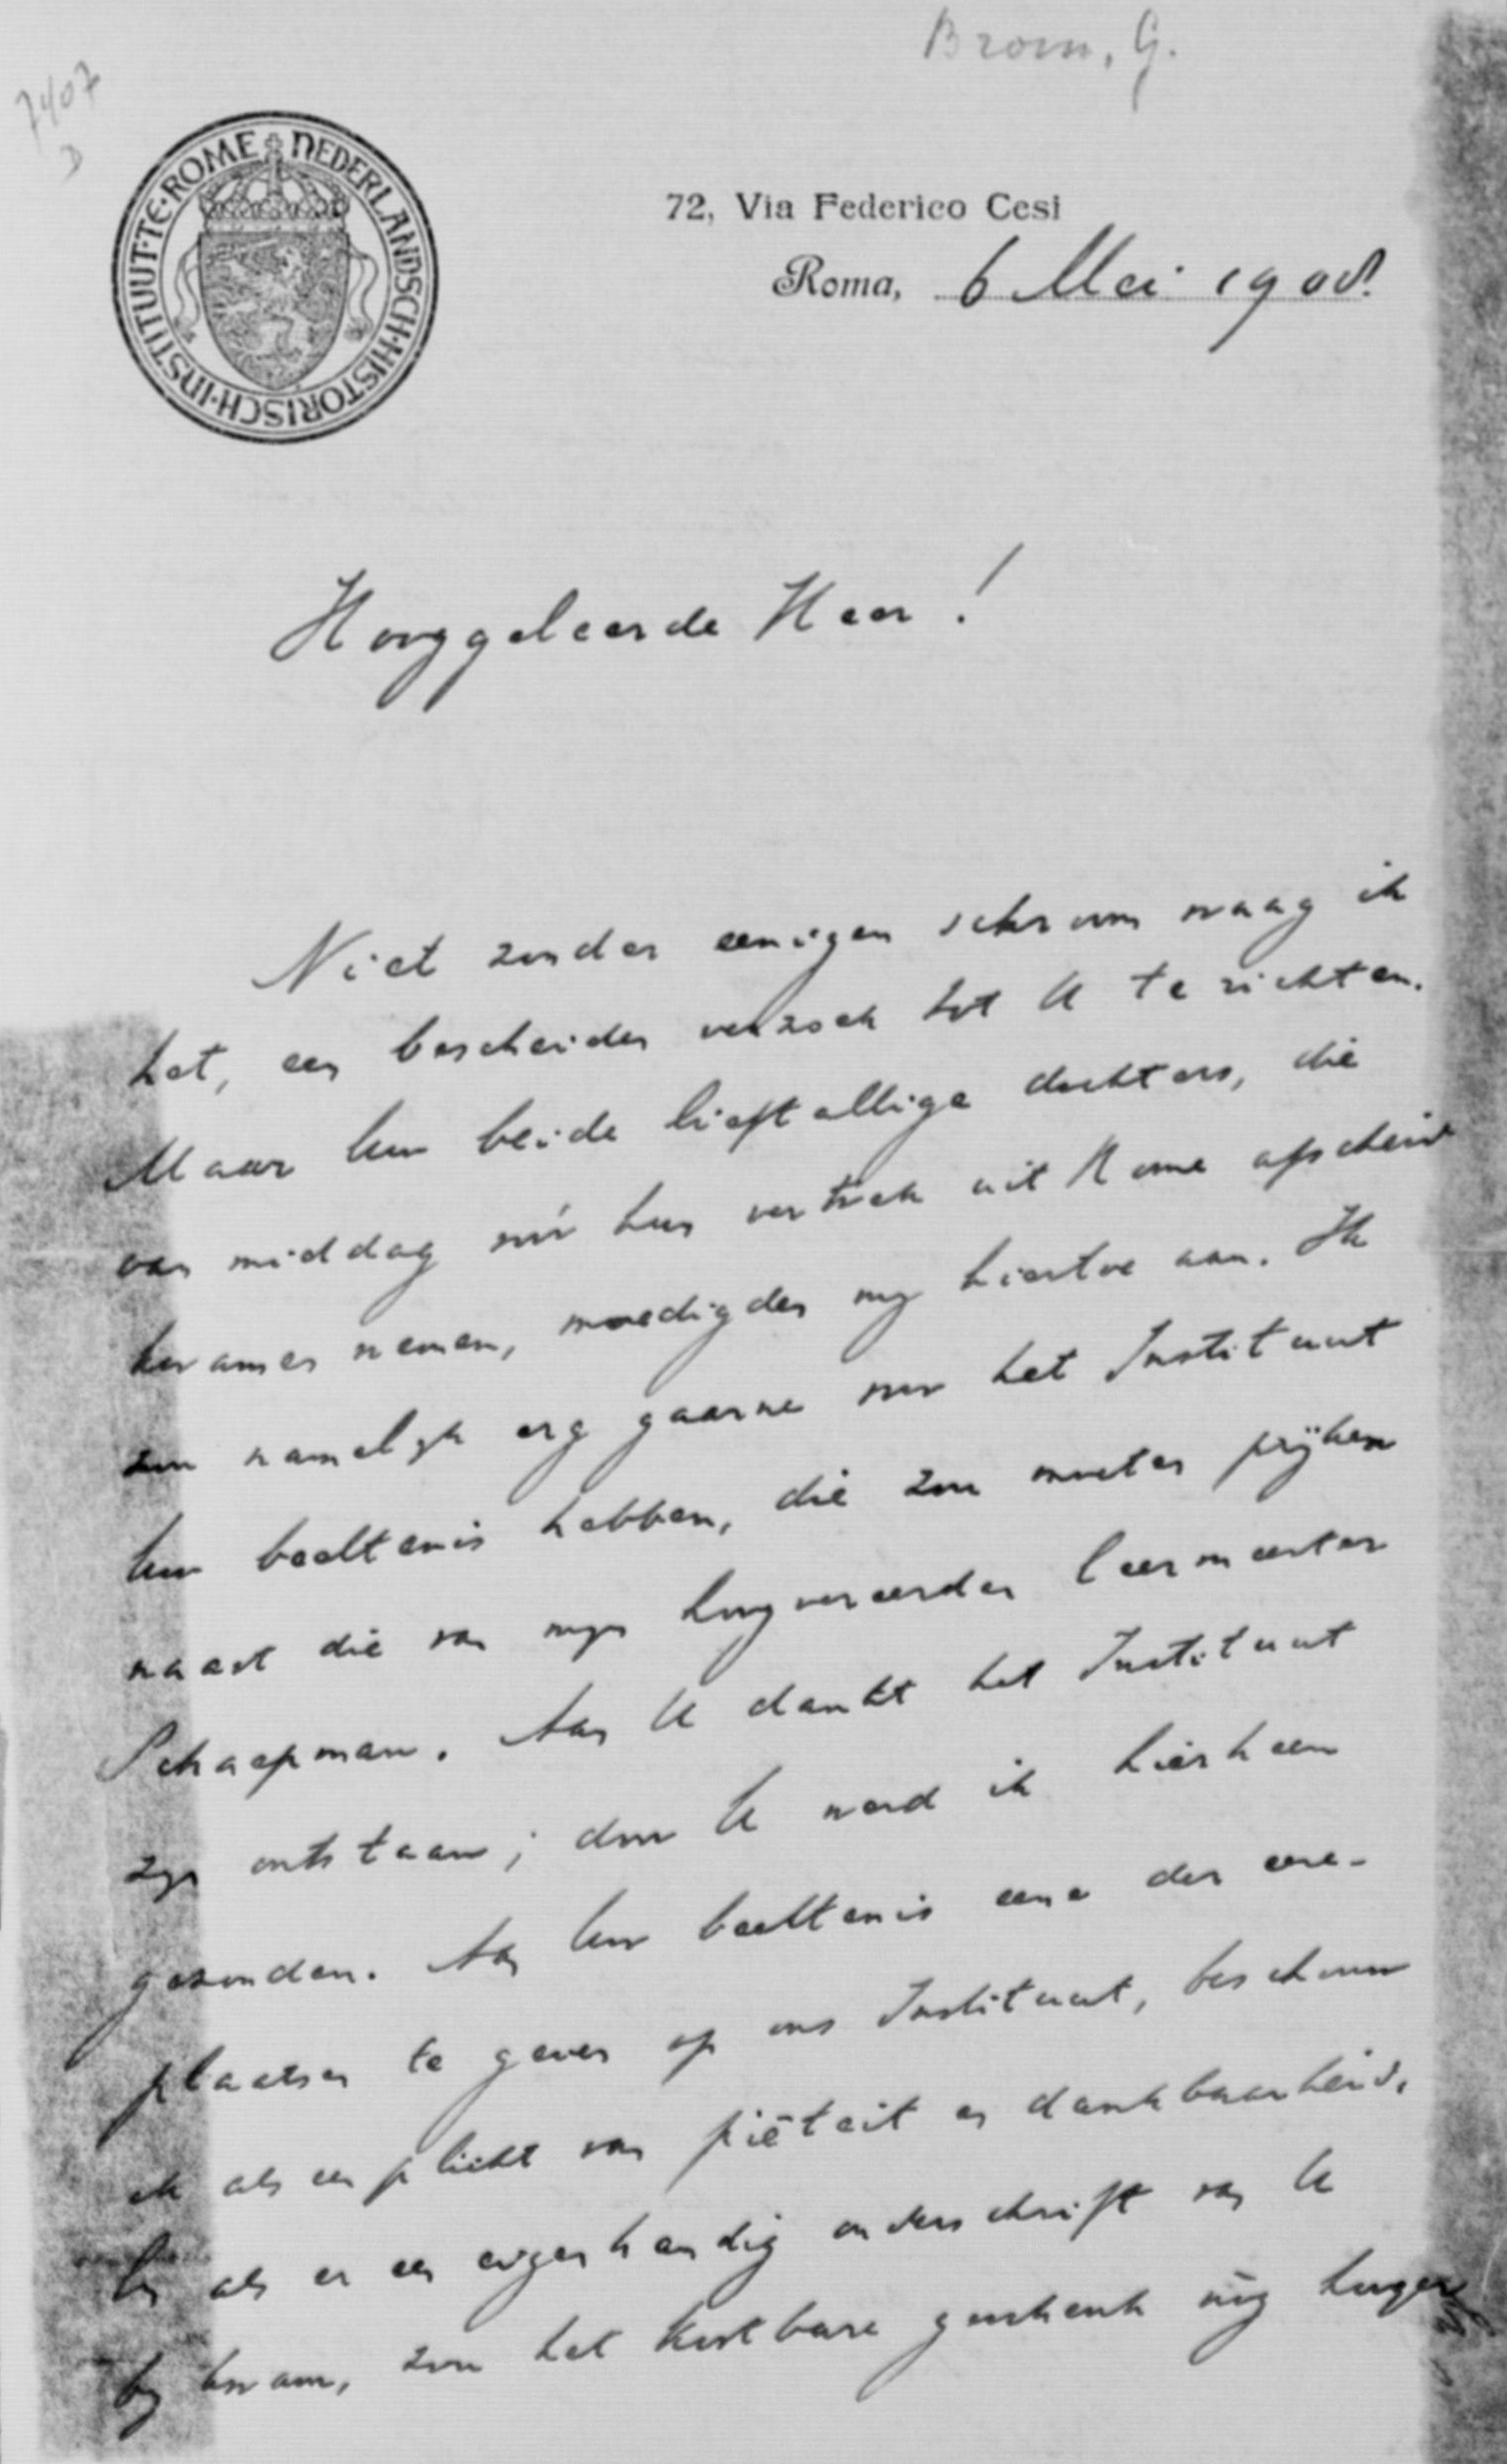 Brom, G.
7407
D
NEDERLANDSCH·HISTORISCH·INSTITUUT·TE·ROME
72, Via Federico Cesi
Roma, 6 Mei 1908.
Hooggeleerde Heer!
Niet zonder eenigen schroom waag ik
het, een bescheiden verzoek tot U te richten.
Maar Uw beide lieftallige dochters, die
van middag vóór hun vertrek uit Rome afscheid
kwamen nemen, moedigden mij hiertoe aan. Ik
zou namelijk erg gaarne voor het Instituut
Uw beeltenis hebben, die zou moeten prijken
naast die van mijn hoogvereerden leermeester
Schaepman. Aan U dankt het Instituut
zijn ontstaan; door U werd ik hierheen
gezonden. Aan Uw beeltenis eene der eere-
plaatsen te geven op ons Instituut, beschouw
ik als een plicht van piëteit en dankbaarheid.
En als er een eigenhandig onderschrift van U
bij kwam, zou het kostbare geschenk nóg hooger